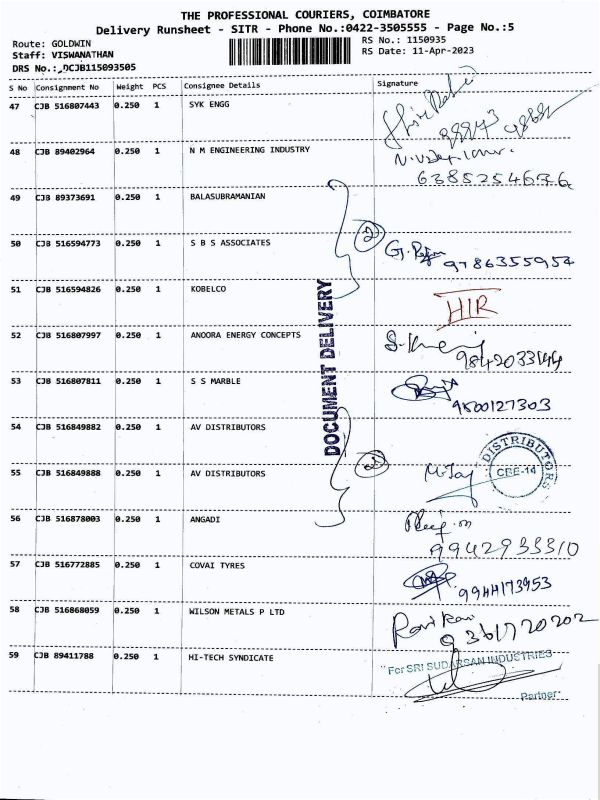 THE PROFESSIONAL COURIERS, COIMBATORE
Delivery Runsheet - SITR - Phone No.:0422-3505555 - Page No.:5
Route: GOLDWIN
Staff: VISWANATHAN
DRS No.: DCJB115093505
RS No.: 1150935
RS Date: 11-Apr-2023
S No Consignment No Weight PCS Consignee Details Signature
47 CJB 516807443 0.250 1 SYK ENGG
48 CJB 89402964 0.250 1 N M ENGINEERING INDUSTRY
6385254676
49 CJB 89373691 0.250 1 BALASUBRAMANIAN
2
50 CJB 516594773 0.250 1 S B S ASSOCIATES
9786355954
51 CJB 516594826 0.250 1 KOBELCO HIR
DOCUMENT DELIVERY
52 CJB 516807997 0.250 1 ANOORA ENERGY CONCEPTS
9842033144
53 CJB 516807811 0.250 1 S S MARBLE
9500127303
54 CJB 516849882 0.250 1 AV DISTRIBUTORS
DISTRIBUTORS
CBE-14
55 CJB 516849888 0.250 1 AV DISTRIBUTORS
2
56 CJB 516878003 0.250 1 ANGADI
9942933310
57 CJB 516772885 0.250 1 COVAI TYRES
9944173953
58 CJB 516868059 0.250 1 WILSON METALS P LTD
Ravi Kumar
9361720202
59 CJB 89411788 0.250 1 HI-TECH SYNDICATE
"For SRI SUDARSAN INDUCTRIES
Partner